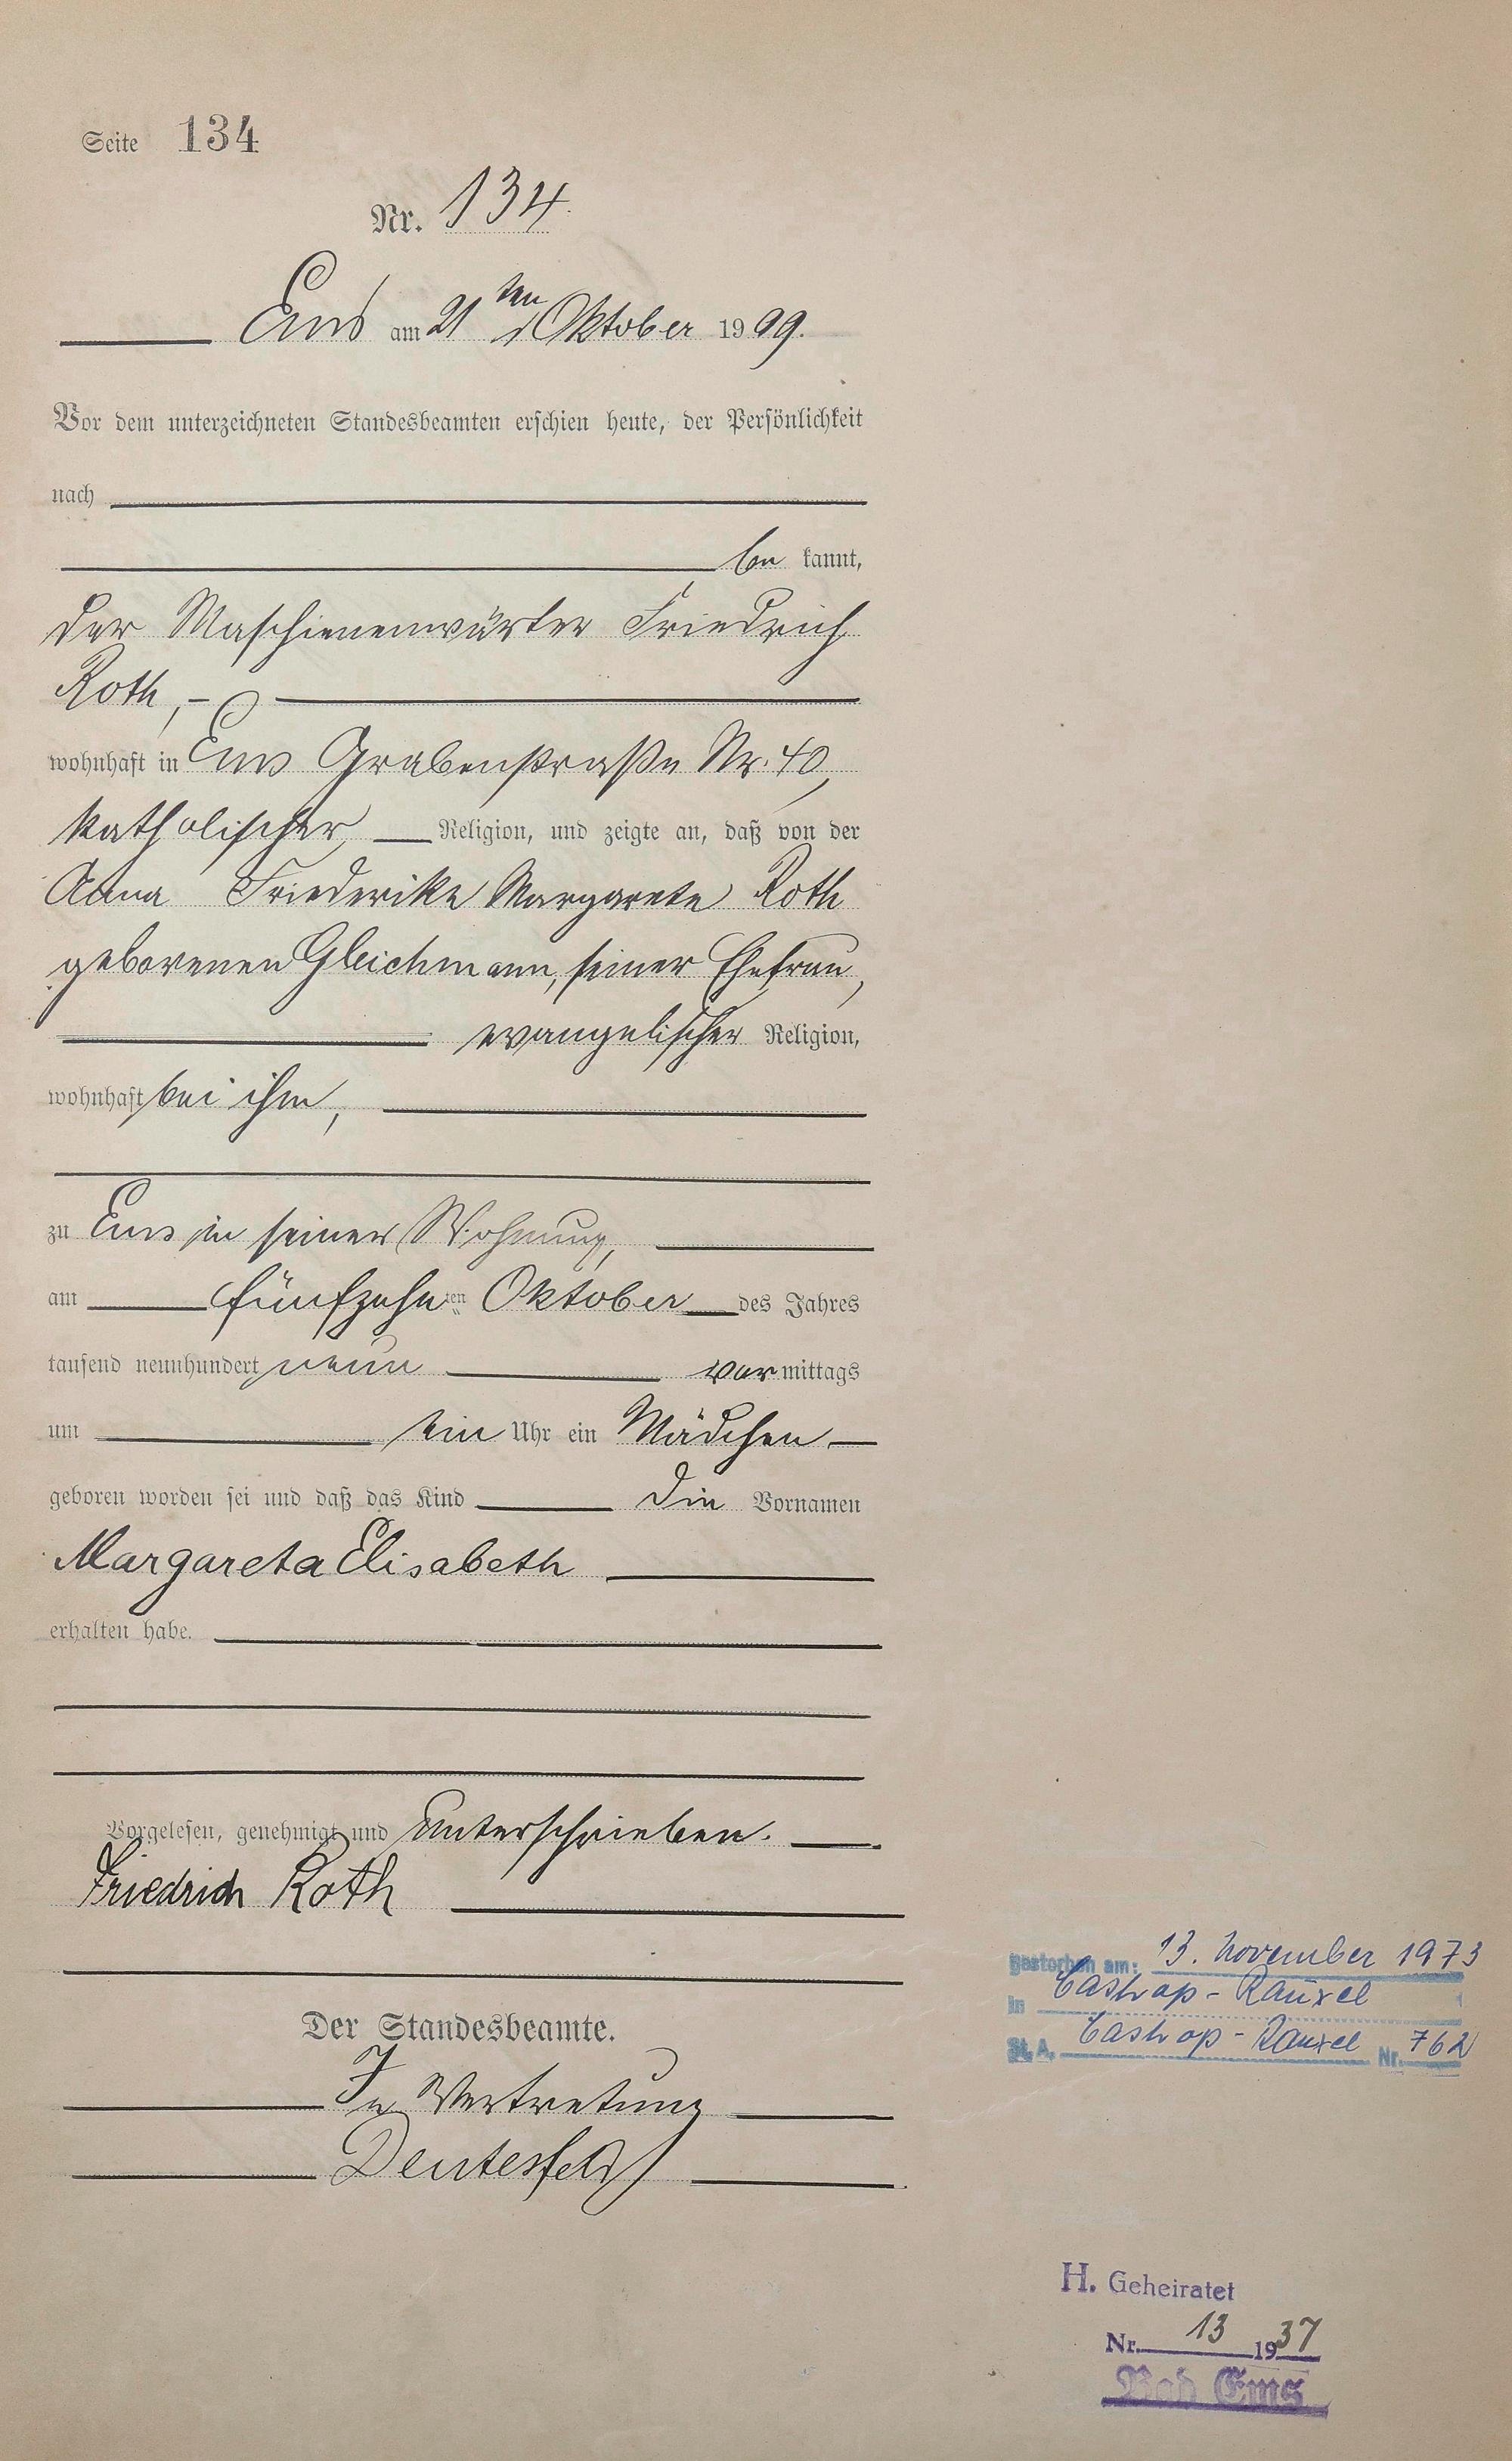 Seite 134
Nr. 134.
Ems am 21ten Oktober 1909.
Vor dem unterzeichneten Standesbeamten erschien heute, der Persönlichkeit
nach
be kannt,
der Maschienenwärter Friedrich
Roth,
wohnhaft in Ems Grabenstraße Nr. 40,
katholischer Religion, und zeigte an, daß von der
Anna Friederike Margarete Roth
geborenen Gleichmann, seiner Ehefrau,
evangelischer Religion,
wohnhaft bei ihm,
zu Ems in seiner Wohnung,
am fünfzehnten Oktober des Jahres
tausend neunhundert neun vormittags
um ein Uhr ein Mädchen
geboren worden sei und daß das Kind die Vornamen
Margareta Elisabeth
erhalten habe.
Vorgelesen, genehmigt und unterschrieben.
Friedrich Roth
Der Standesbeamte.
In Vertretung
Deutesfeld
gestorben am: 13. November 1973
in Castrop-Rauxel
St. A. Castrop-Rauxel Nr. 762
H. Geheiratet
Nr. 13 1937
Bad Ems